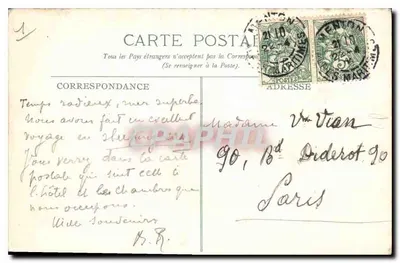 1
CARTE POSTALE
Tous les Pays étrangers n'acceptent pas la Correspondance
(Se renseigner à la Poste).
MENTON
MENTON
CORRESPONDANCE
ADRESSE
Temps radieux, mer superbe,
Nous avons fait un excellent
voyage en
Vous verrez dans la carte
postale qui suit celle à
l'hôtel et les chambres que
nous occupons.
souvenirs
Madame Vve Vian
90, Bd Diderot 90
Paris